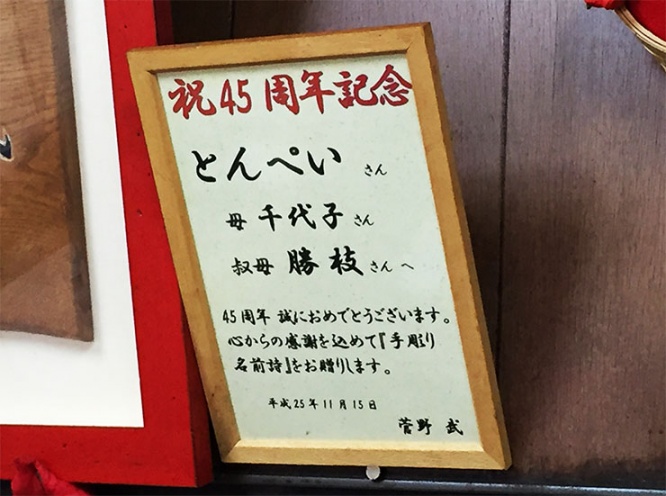 祝45周年記念
とんぺい さん
母 千代子 さん
叔母 勝枝 さん へ
45周年 誠におめでとうございます。
心からの感謝を込めて『手彫り
名前詩』をお贈りします。
平成25年11月15日
菅野 武